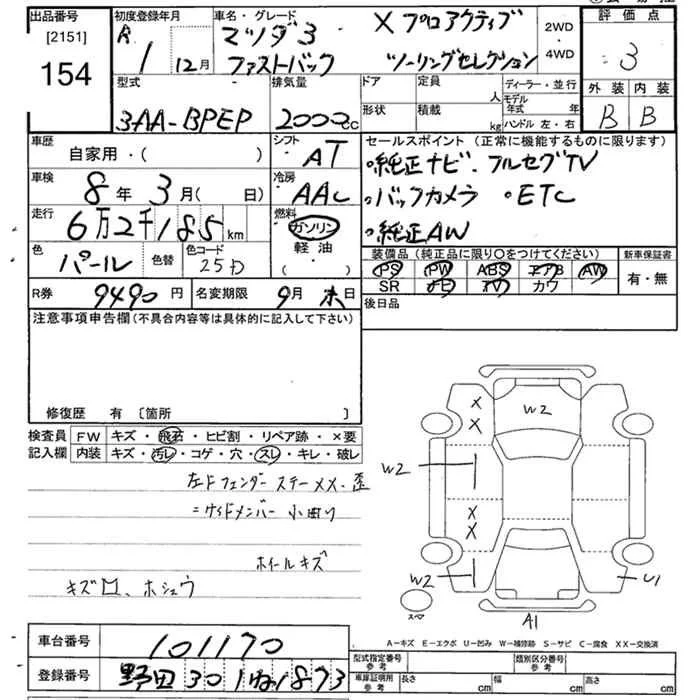 出品番号 初度登録年月 車名・グレード 評価点
[2151] R 1 12月 マツダ3 Xプロアクティブ 2WD
154 ファストバック ツーリングセレクション 4WD 3
外装 内装
型式 排気量 ドア 定員 人 ディーラー・並行 B B
3AA-BPEP 2000cc 形状 積載 kg モデル年式 年
ハンドル 左・右
車歴 シフト セールスポイント(正常に機能するものに限ります)
自家用・( ) AT ・純正ナビ、フルセグTV
車検 冷房 ・バックカメラ ・ETC
8年3月( 日) AAC ・純正AW
走行 燃料
6万2千185km ガソリン
軽油
( )
色 色替 色コード 装備品(純正品に限り○をつけてください) 新車保証書
パール 25D PS PW ABS エアB AW 有・無
SR ナビ カワ
R券 9490円 名変期限 9月末日 後日品
注意事項申告欄(不具合内容等は具体的に記入して下さい)
修復歴 有 〔箇所 〕
検査員 FW キズ・飛石・ヒビ割・リペア跡・×要
記入欄 内装 キズ・汚レ・コゲ・穴・スレ・キレ・破レ
左Fフェンダーステー××、歪
ホイールキズ
X
X W2
W2
X
X
W2 U1
スペア A1
A-キズ E-エクボ U-凹み W-補修跡 S-サビ C-腐食 XX-交換済
車台番号 101170
登録番号 野田301 1873
型式指定番号 参考 類別区分番号 参考
車庫証明用 参考 長さ cm 幅 cm 高さ cm